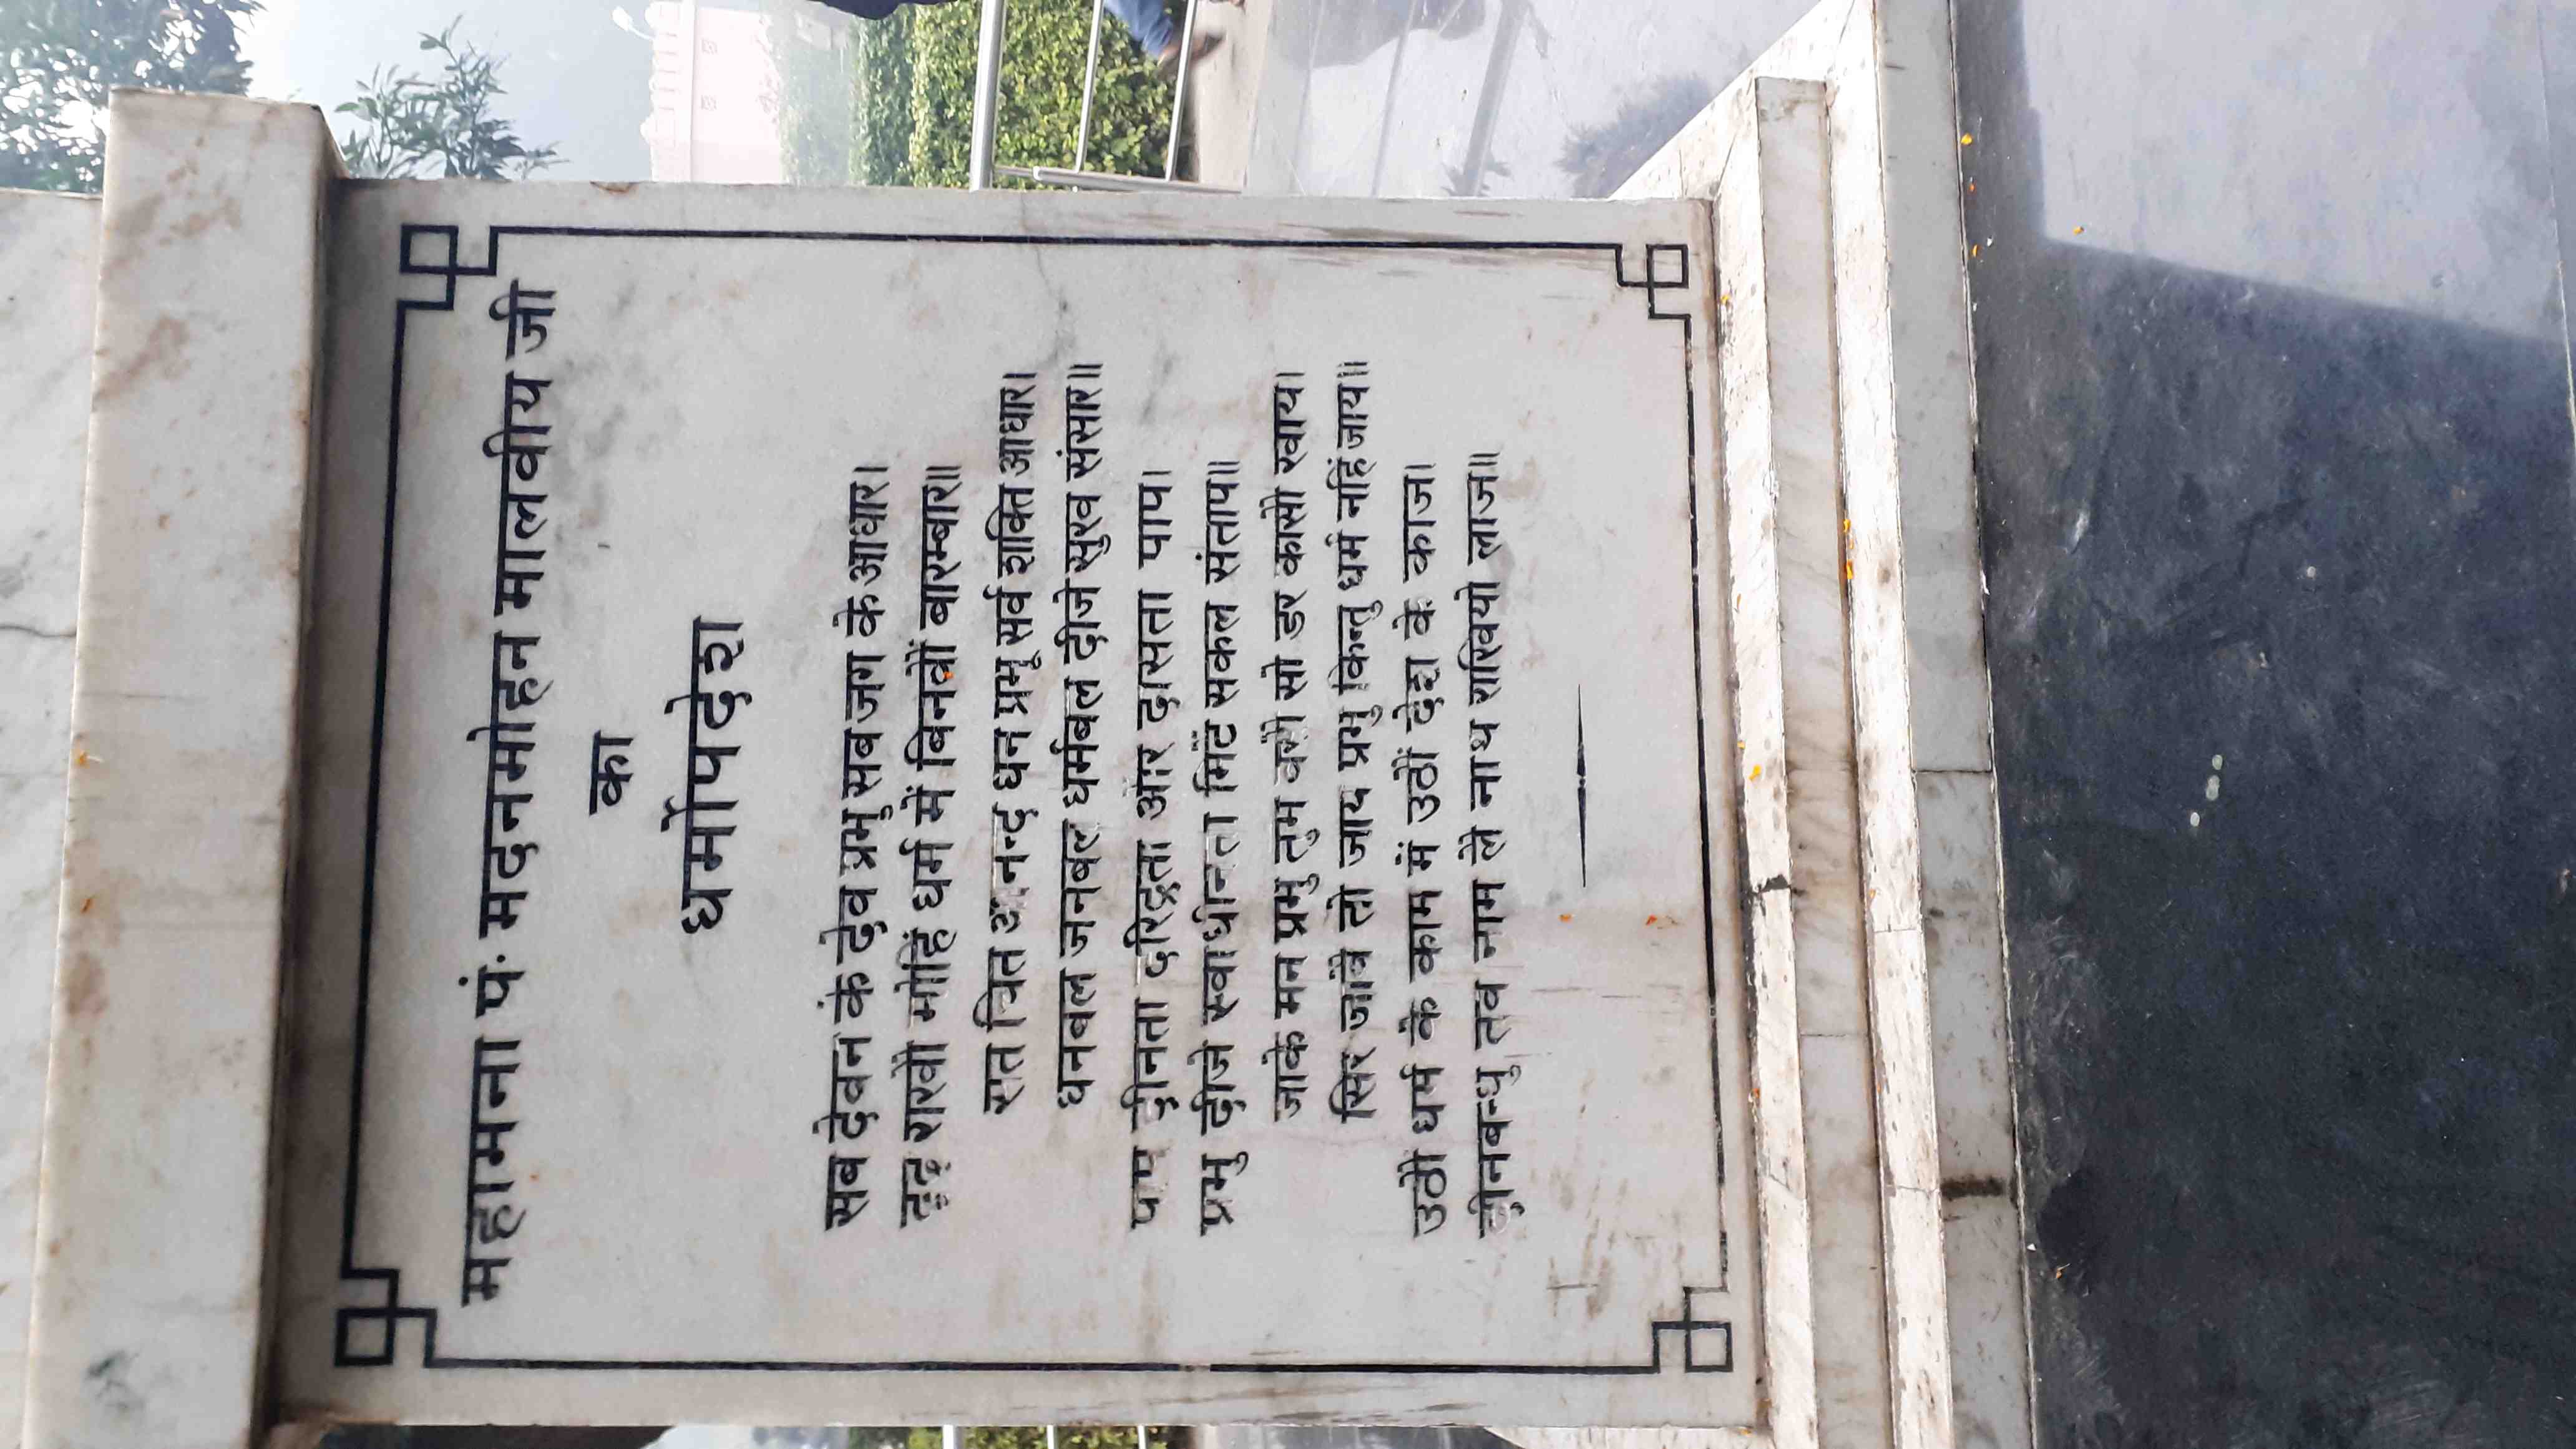 महामना पं. मदनमोहन मालवीय जी
का
धर्मोपदेश
सब देवन के देव प्रभु सब जग के आधार।
दृढ़ राखौ मोहिं धर्म में बिनवौं बारम्बार॥
सत चित आनन्द घन प्रभू सर्व शक्ति आधार।
धनबल जनबल धर्मबल दीजे सुख संसार॥
पाप दीनता दरिद्रता और दासता पाप।
प्रभु दीजे स्वाधीनता मिटै सकल संताप॥
जाके मन प्रभु तुम बसौ सो डर कासो खाय।
सिर जावै तो जाय प्रभु किन्तु धर्म नहिं जाय॥
उठौं धर्म के काम में उठौं देश के काज।
दीनबन्धु तव नाम ले नाथ राखियो लाज॥